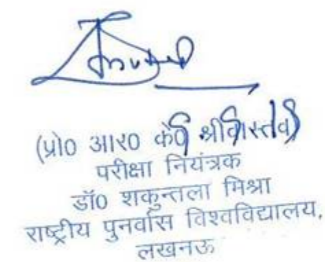 (प्रो० आर० के० श्रीवास्तव)
परीक्षा नियंत्रक
डॉ० शकुन्तला मिश्रा
राष्ट्रीय पुनर्वास विश्वविद्यालय,
लखनऊ